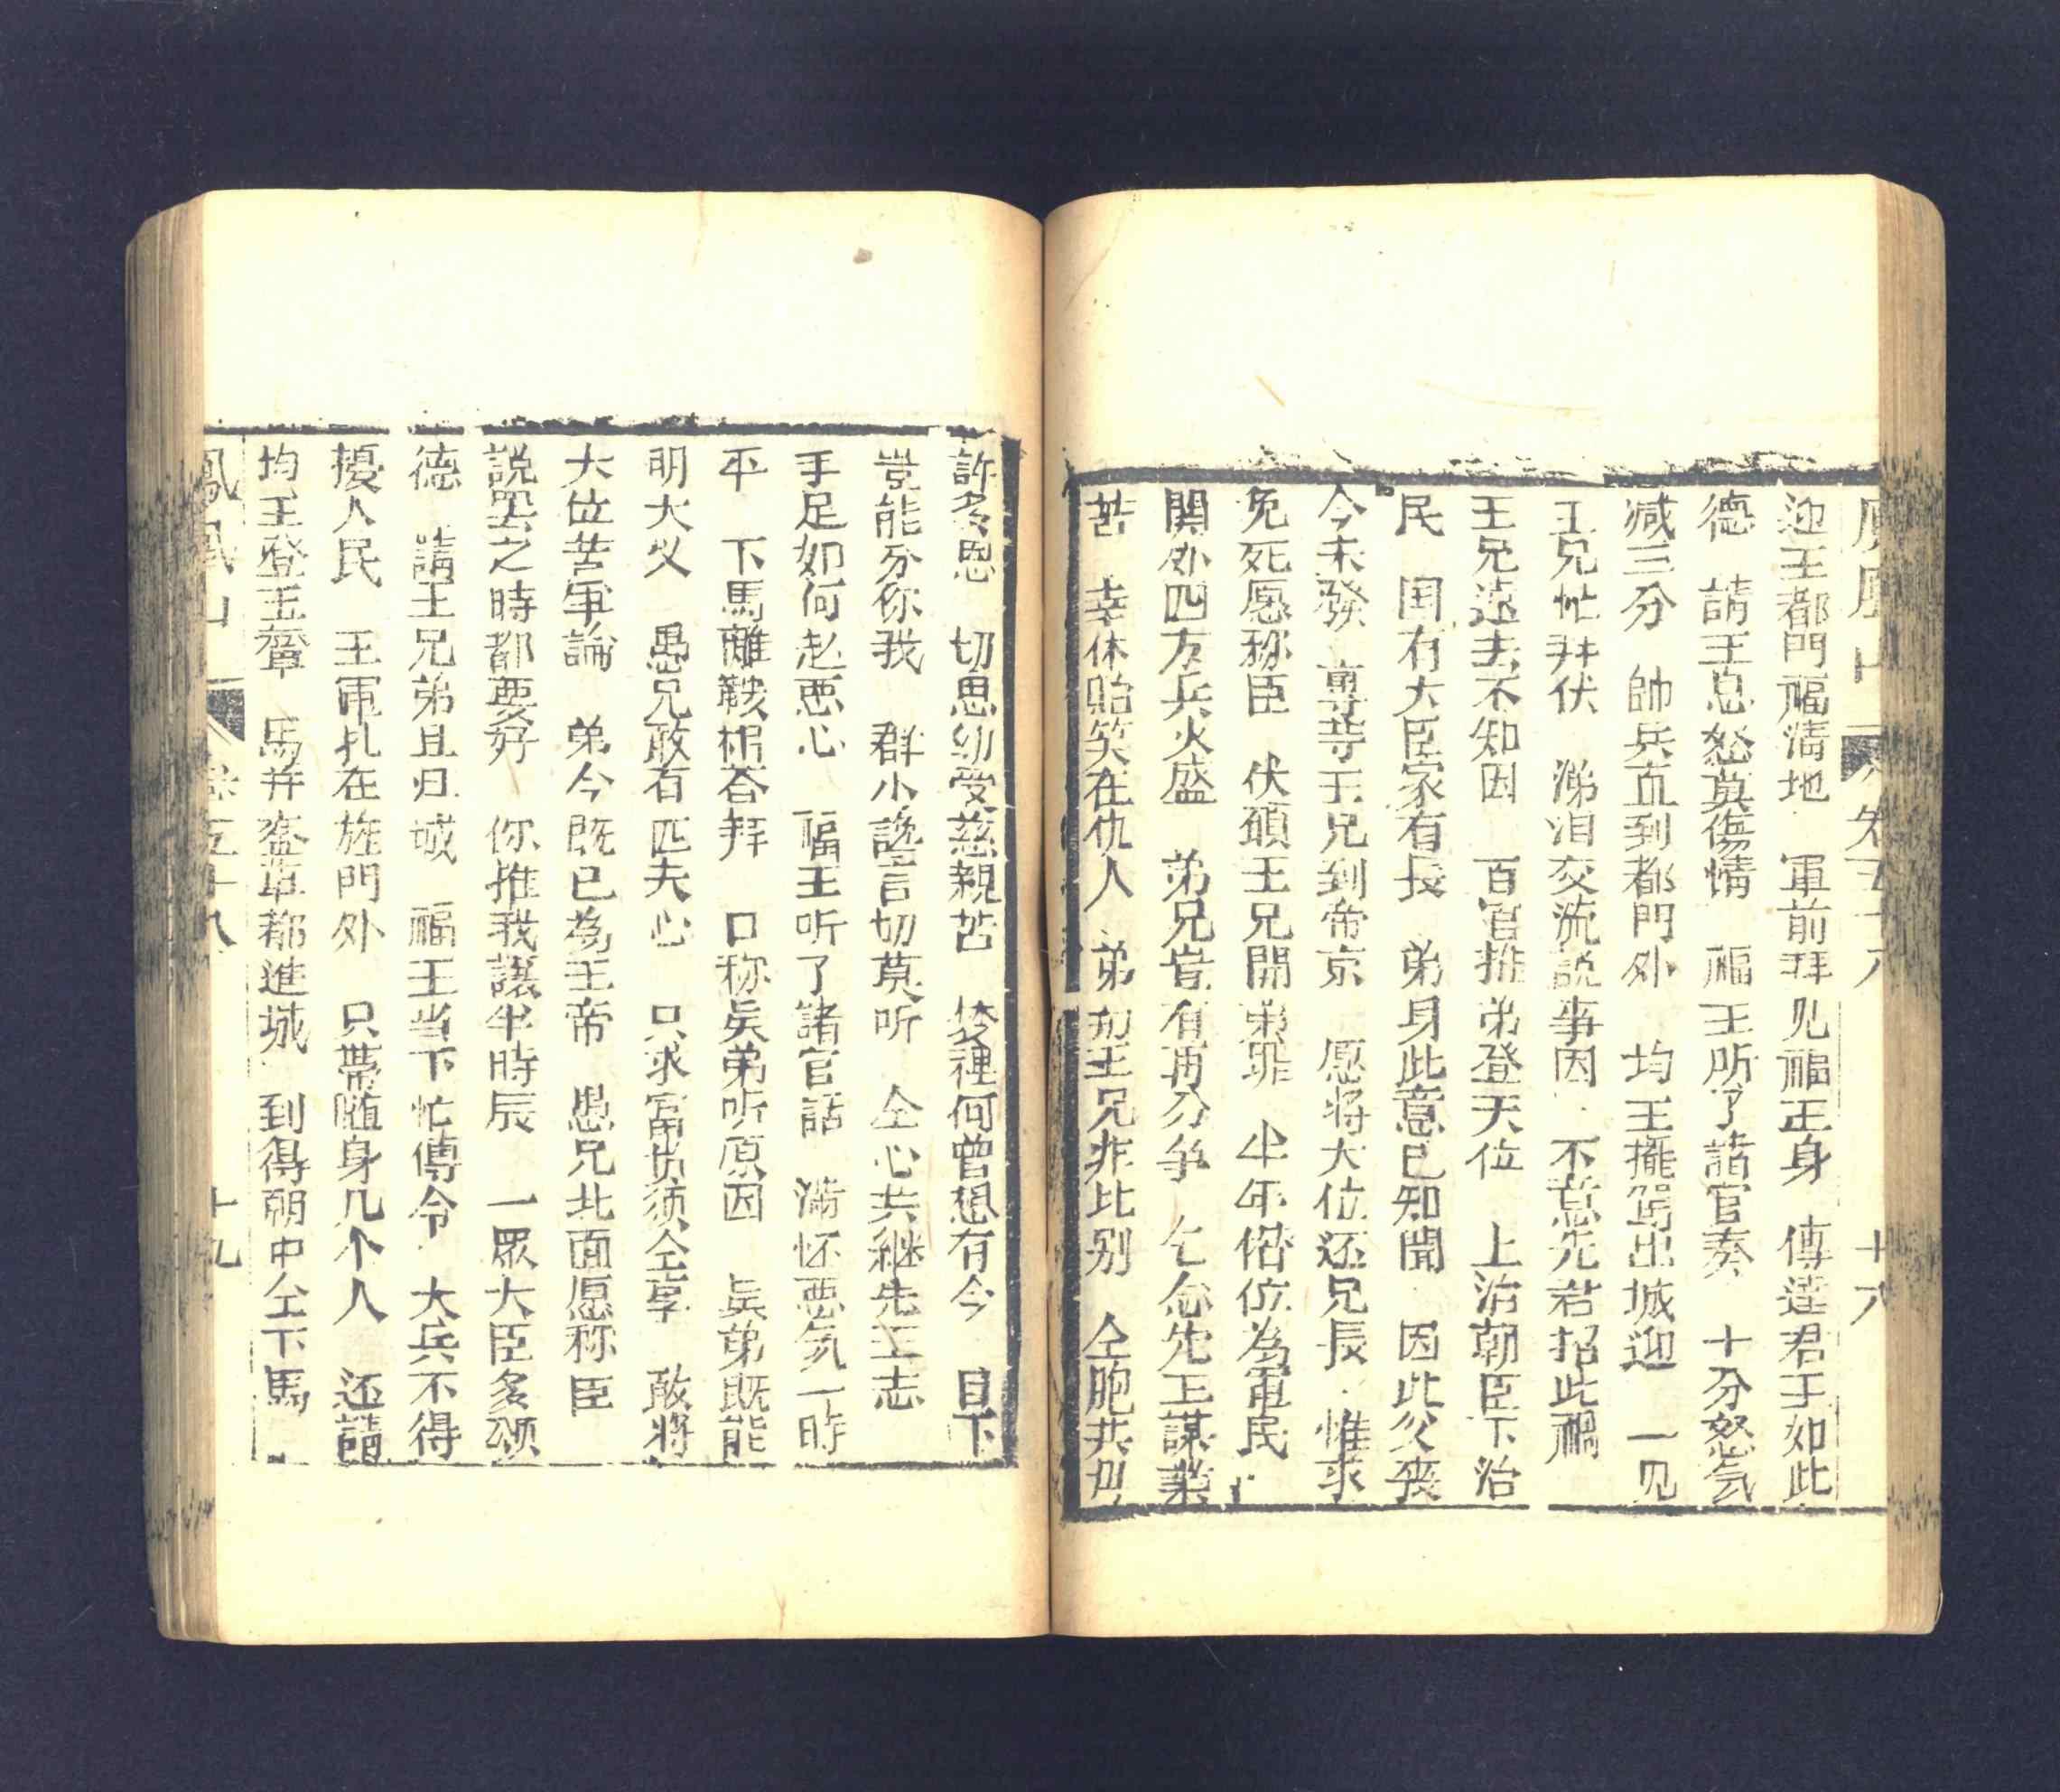 鳳凰山 卷五十八 十八
迎王都門福清地 軍前拜見福王身 傳達君王如此
德 請王息怒莫傷情 福王听了諸官奏 十分怒気
减三分 帥兵直到都門外 均王擺駕出城迎 一见
王兄忙拜伏 涕泪交流説事因 不意先君招此禍
王兄遠去不知因 百官推弟登天位 上治朝臣下治
民 国有大臣家有長 弟身此意已知聞 因此父喪
今未發 專等王兄到帝京 愿将大位还兄長 惟求
免死愿称臣 伏碩王兄開弟罪 半年僭位為軍民
関外四方兵火盛 弟兄豈有再分争 乞念先王謀業
苦 幸休貽笑在仇人 弟如王兄非比别 仝胞共母
許多恩 切思幼受慈親苦 後裡何曽想有今 目下
豈能分你我 群小讒言切莫听 仝心共継先王志
手足如何起悪心 福王听了諸官話 满怀悪気一時
平 下馬離鞍相荅拜 口称矣弟听原因 矣弟既能
明大义 愚兄敢有匹夫心 只求富贵须仝享 敢将
大位苦争論 弟今既已為王帝 愚兄北面愿称臣
説罢之時都要好 你推我讓半時辰 一眾大臣多頌
德 請王兄弟且归城 福王当下忙傳令 大兵不得
擾人民 王軍扎在旌門外 只帶随身几个人 还請
均王登玉輦 馬并鑾車都進城 到得朝中仝下馬
鳳凰山 卷五十八 十九